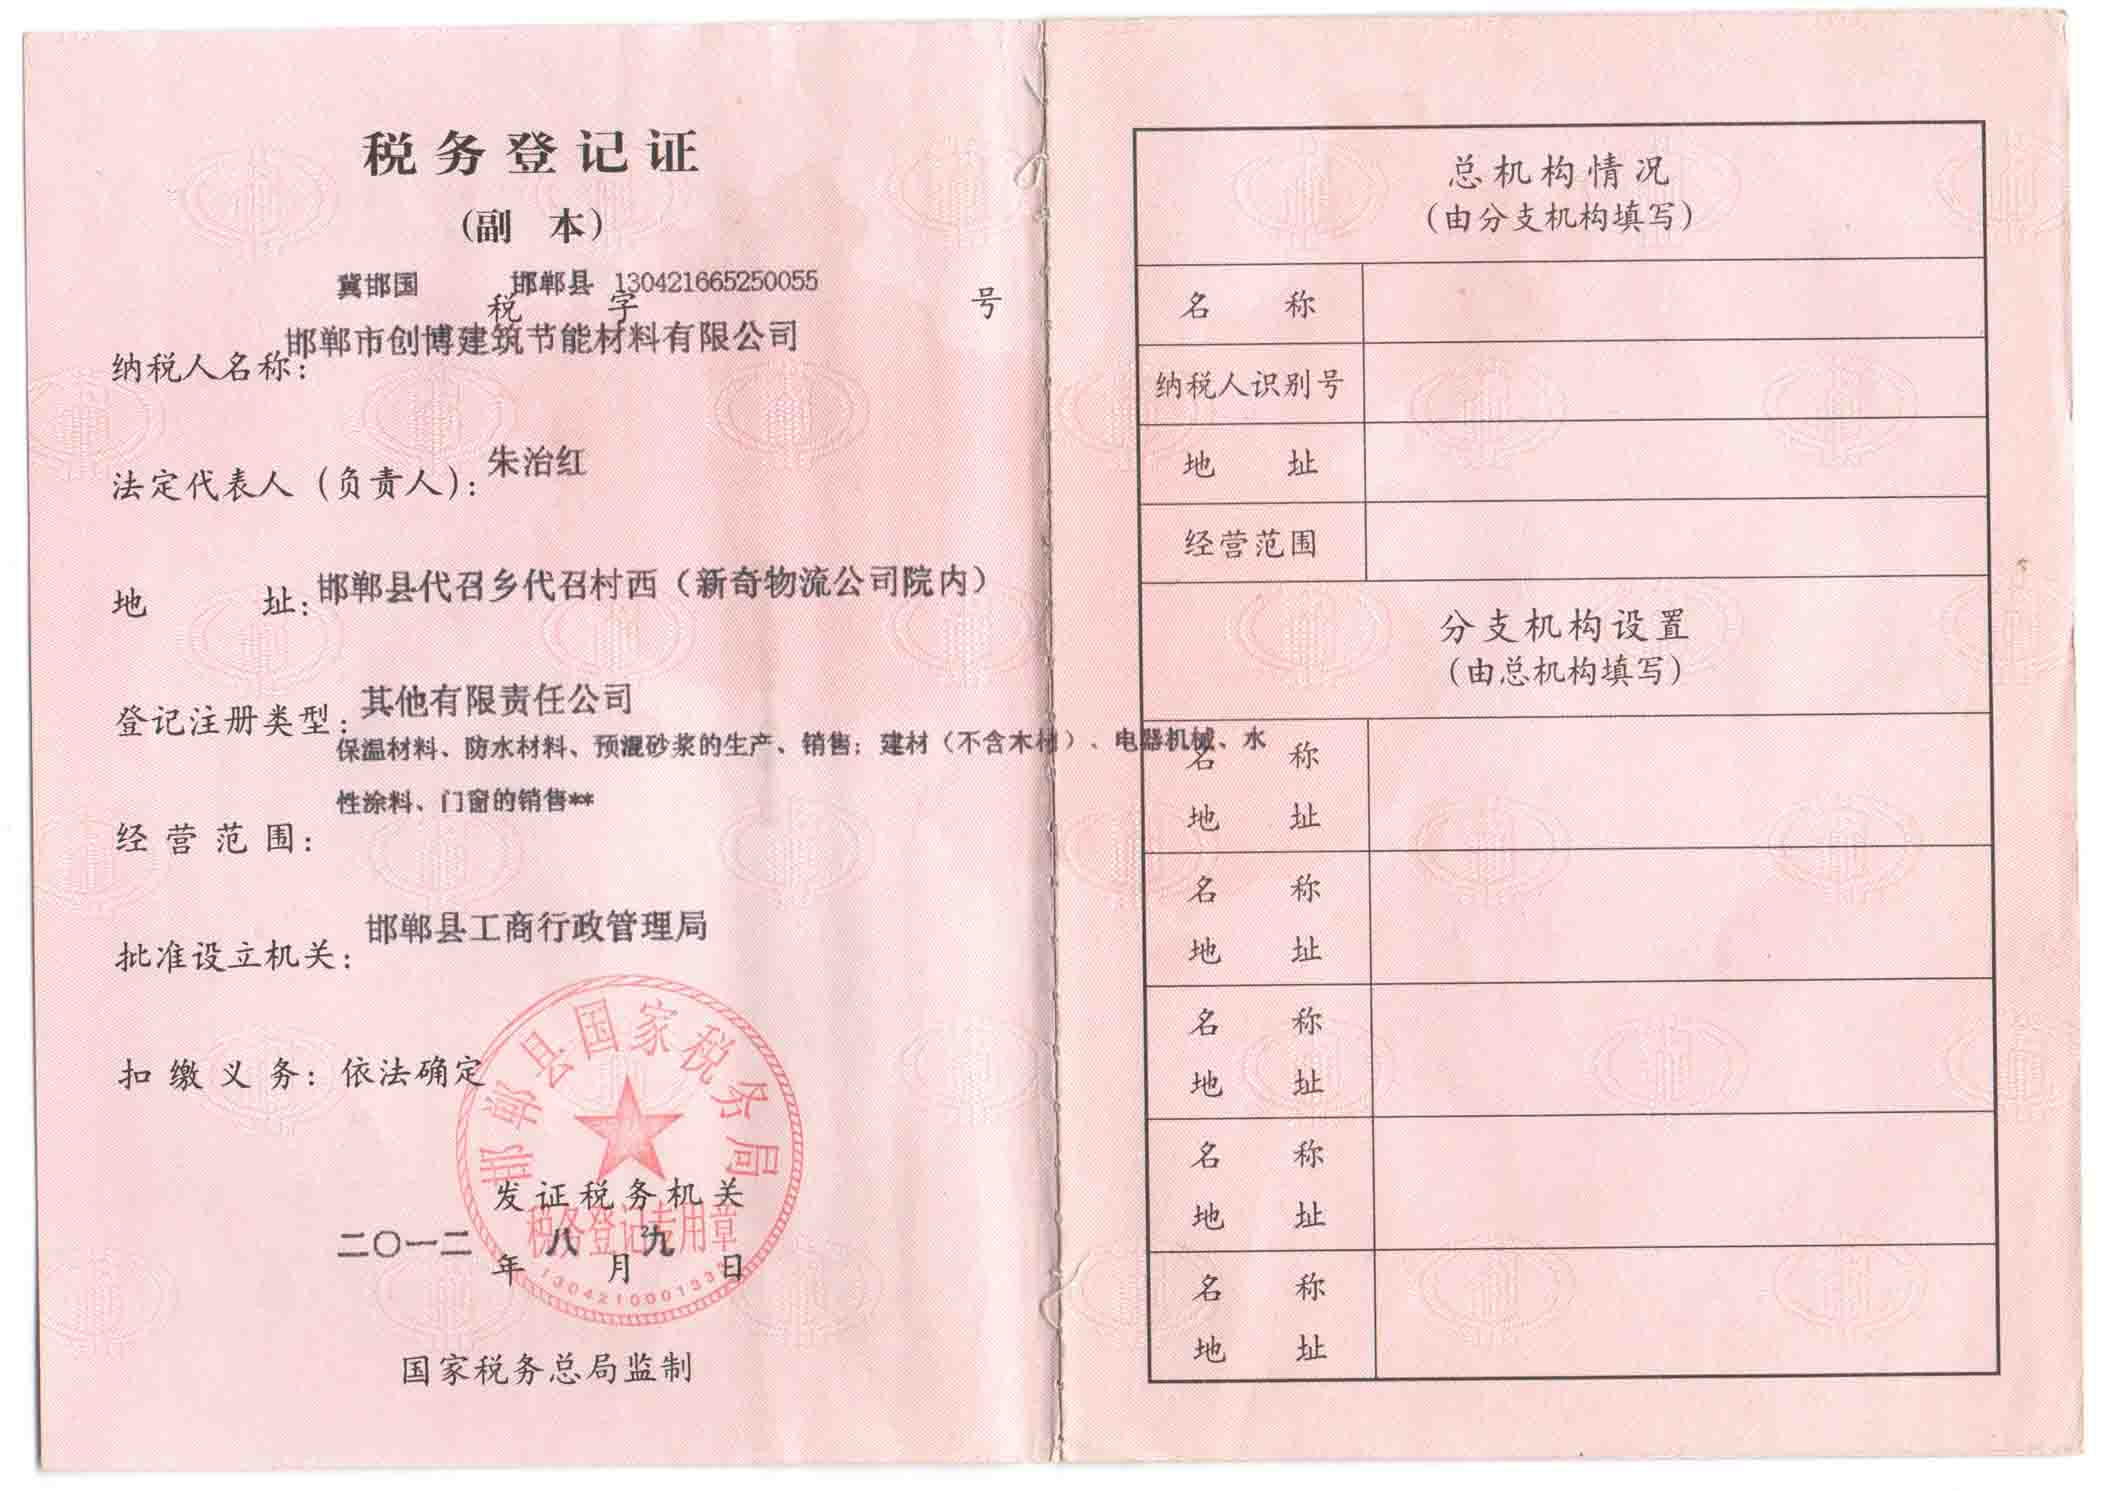 税务登记证
(副 本)
冀邯国 税 邯郸县 字 130421665250055 号
纳税人名称: 邯郸市创博建筑节能材料有限公司
法定代表人(负责人): 朱治红
地 址: 邯郸县代召乡代召村西(新奇物流公司院内)
登记注册类型: 其他有限责任公司
经营范围: 保温材料、防水材料、预混砂浆的生产、销售; 建材(不含木材)、电器机械、水
性涂料、门窗的销售**
批准设立机关: 邯郸县工商行政管理局
扣缴义务: 依法确定
邯郸县国家税务局
发证税务机关
税务登记专用章
二〇一二 年 八 月 九 日
国家税务总局监制
总机构情况
(由分支机构填写)
名 称
纳税人识别号
地 址
经营范围
分支机构设置
(由总机构填写)
名 称
地 址
名 称
地 址
名 称
地 址
名 称
地 址
名 称
地 址